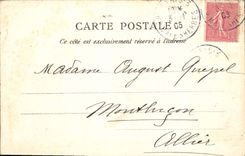 CARTE POSTALE
Ce côté est exclusivement réservé à l'adresse
05
Madame August
Montluçon
Allier